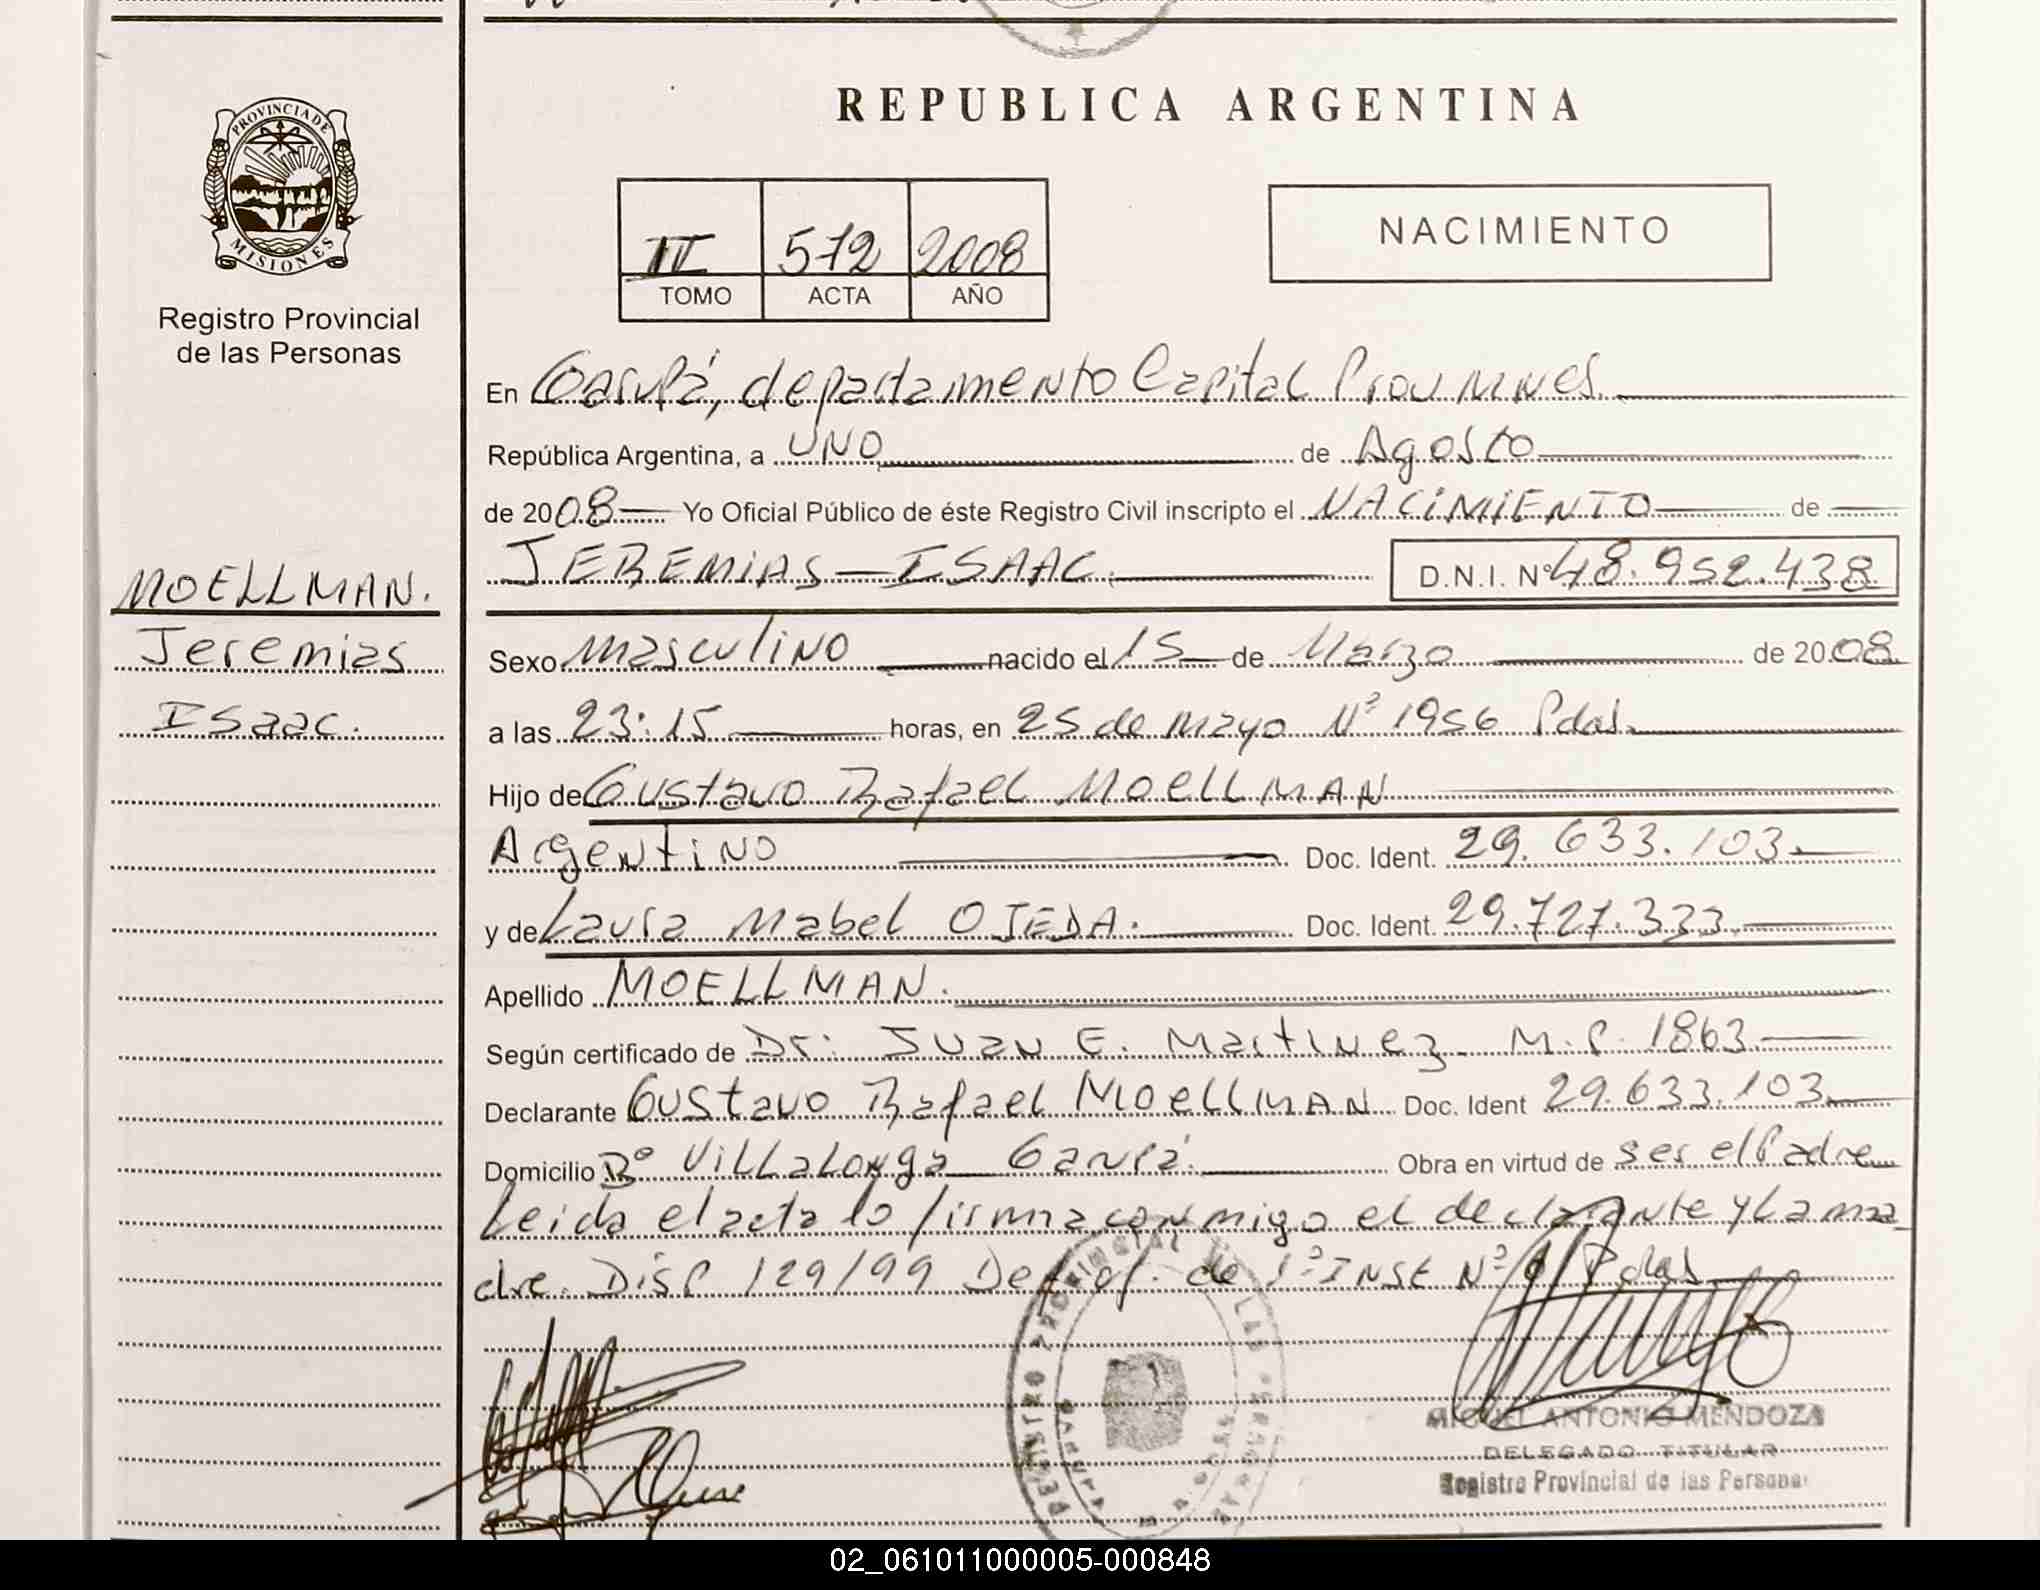 REPUBLICA ARGENTINA
PROVINCIA DE
MISIONES
Registro Provincial
de las Personas
II 572 2008
TOMO ACTA AÑO
NACIMIENTO
En Garupá, departamento Capital Prov MNES.
República Argentina, a UNO de Agosto
de 2008 Yo Oficial Público de éste Registro Civil inscripto el NACIMIENTO de
JEREMIAS ISAAC. D.N.I. Nº 48.952.438
MOELLMAN.
Jeremias
Isaac.
Sexo Masculino nacido el 15 de Marzo de 2008
a las 23:15 horas, en 25 de Mayo Nº 1956 Pdas.
Hijo de Gustavo Rafael MOELLMAN
Argentino Doc. Ident. 29.633.103.
y de Laura Mabel OJEDA. Doc. Ident. 29.727.333.
Apellido MOELLMAN.
Según certificado de Dr: JUAN E. Martinez. M.P. 1863.
Declarante Gustavo Rafael MOELLMAN Doc. Ident 29.633.103.
Domicilio Bº Villalonga Garupá. Obra en virtud de ser el Padre
Leida el acta lo firma conmigo el declarante y la ma
dre. Disp 129/99 Def. of. de 1º INST Nº Pdas
REGISTRO PROVINCIAL DE LAS PERSONAS
MIGUEL ANTONIO MENDOZA
DELEGADO TITULAR
Registro Provincial de las Personas
02_061011000005-000848